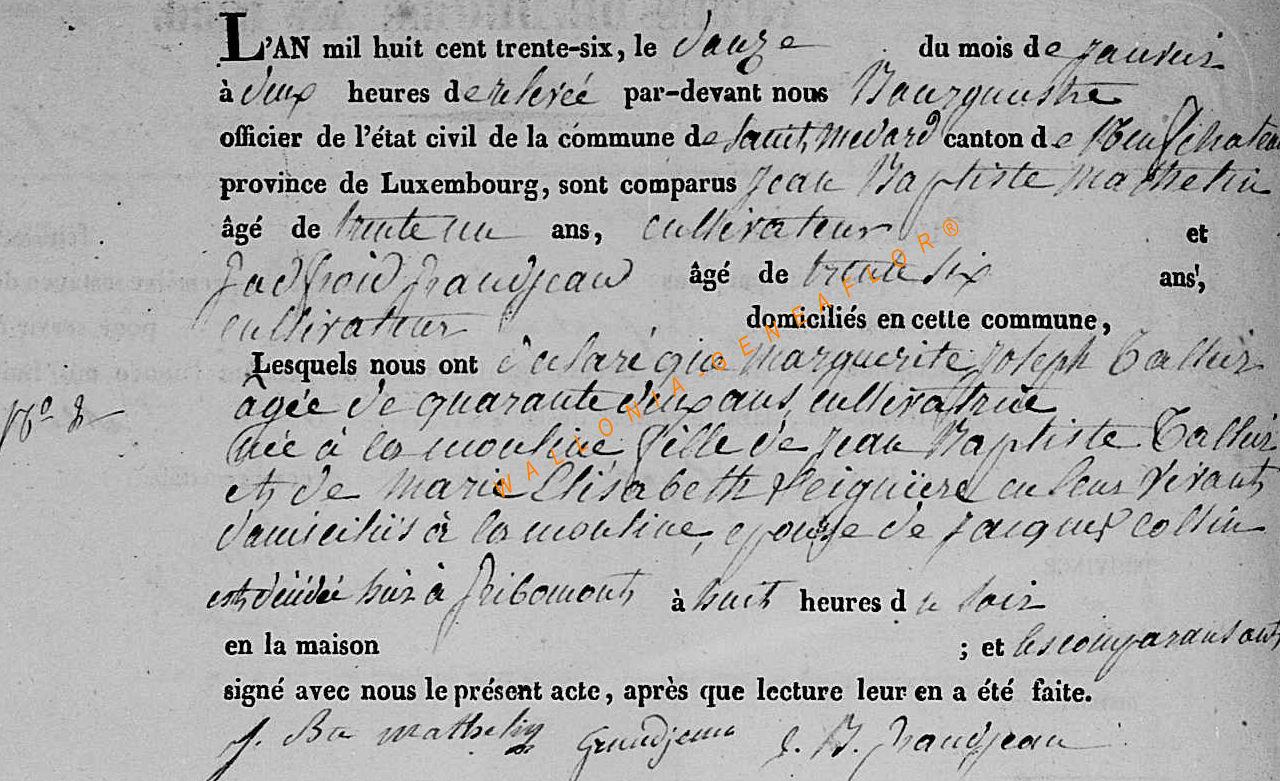 L'AN mil huit cent trente-six, le douze du mois de janvier
à deux heures de relevée par-devant nous Bourguestre
officier de l'état civil de la commune de Saint Medard canton de Neufchateau
province de Luxembourg, sont comparus Jean Baptiste Mathelin
âgé de trente un ans, cultivateur et
Godfroid Grandjean âgé de trente six ans,
cultivateur domiciliés en cette commune,
Lesquels nous ont déclaré que Marguerite Joseph Collur
agée de quarante deux ans, cultivatrice
N° 2
née à la mouline fille de Jean Baptiste
et de Marie Elisabeth en leur vivant
domiciliés à la mouline, epouse de Jacques Collin
est décédée hier à Gribomont à huit heures du soir
en la maison ; et les comparans ont
signé avec nous le présent acte, après que lecture leur en a été faite.
J. Bte Mathelin Grandjean J. B. Grandjean
WALLONIA-GENEAFLOR®